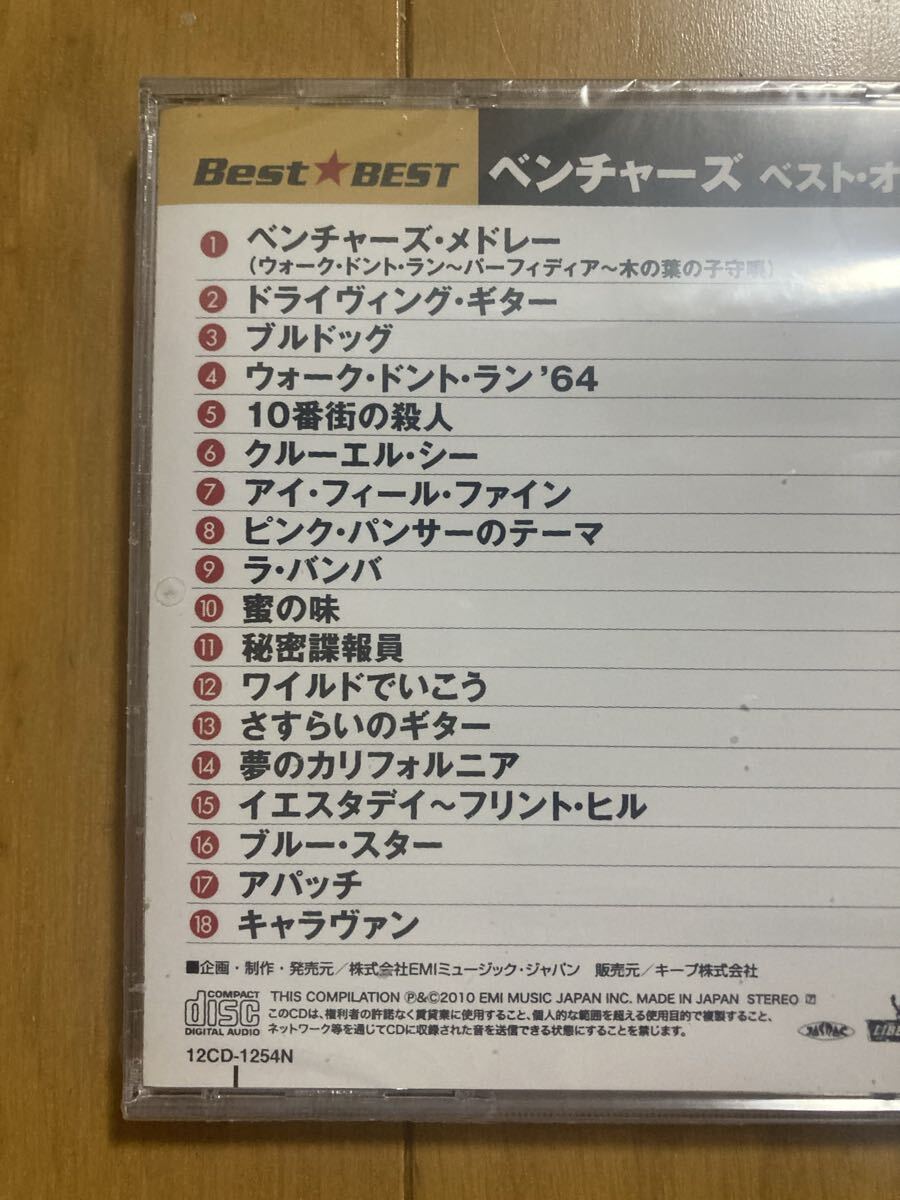 Best★BEST ベンチャーズ ベスト・オ
1 ベンチャーズ・メドレー
(ウォーク・ドント・ラン〜パーフィディア〜木の葉の子守唄)
2 ドライヴィング・ギター
3 ブルドッグ
4 ウォーク・ドント・ラン'64
5 10番街の殺人
6 クルーエル・シー
7 アイ・フィール・ファイン
8 ピンク・パンサーのテーマ
9 ラ・バンバ
10 蜜の味
11 秘密諜報員
12 ワイルドでいこう
13 さすらいのギター
14 夢のカリフォルニア
15 イエスタデイ〜フリント・ヒル
16 ブルー・スター
17 アパッチ
18 キャラヴァン
■企画・制作・発売元/株式会社EMIミュージック・ジャパン 販売元/キープ株式会社
COMPACT disc DIGITAL AUDIO
THIS COMPILATION ℗&©2010 EMI MUSIC JAPAN INC. MADE IN JAPAN STEREO
このCDは、権利者の許諾なく賃貸業に使用すること、個人的な範囲を超える使用目的で複製すること、
ネットワーク等を通じてCDに収録された音を送信できる状態にすることを禁じます。
JASRAC
12CD-1254N